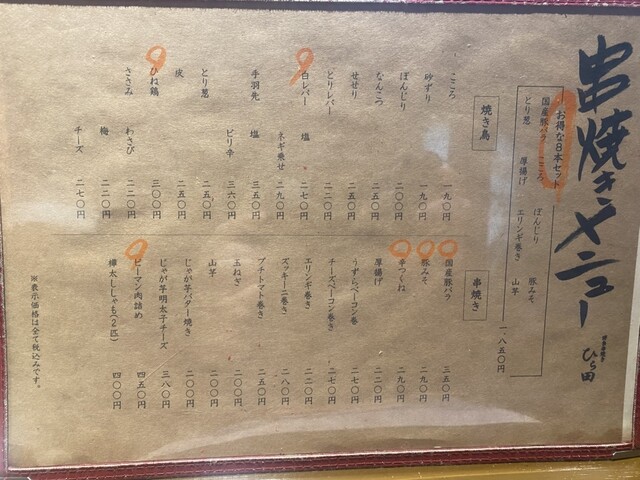 串焼きメニュー
博多串焼き
ひら田
お得な8本セット
国産豚バラ
こころ
ぼんじり
豚みそ
とり葱
厚揚げ
エリンギ巻き
山芋
一、八五〇円
焼き鳥
こころ 一九〇円
砂ずり 一九〇円
ぼんじり 二〇〇円
なんこつ 二五〇円
せせり 二五〇円
とりレバー 二二〇円
白レバー 塩 二七〇円
ネギ乗せ 二九〇円
手羽先 塩 三五〇円
ピリ辛 三六〇円
とり葱 二五〇円
皮 二五〇円
ひね鶏 三〇〇円
ささみ わさび 二二〇円
梅 二二〇円
チーズ 二七〇円
串焼き
国産豚バラ 三五〇円
豚みそ 二九〇円
手つくね 二九〇円
厚揚げ 二二〇円
うずらベーコン巻 二七〇円
チーズベーコン巻き 二七〇円
エリンギ巻き 二二〇円
ズッキーニ巻き 二八〇円
プチトマト巻き 二五〇円
玉ねぎ 二〇〇円
山芋 二〇〇円
じゃが芋バター焼き 二〇〇円
じゃが芋明太子チーズ 三八〇円
ピーマン肉詰め 四五〇円
樺太ししゃも(2匹) 四〇〇円
※表示価格は全て税込みです。